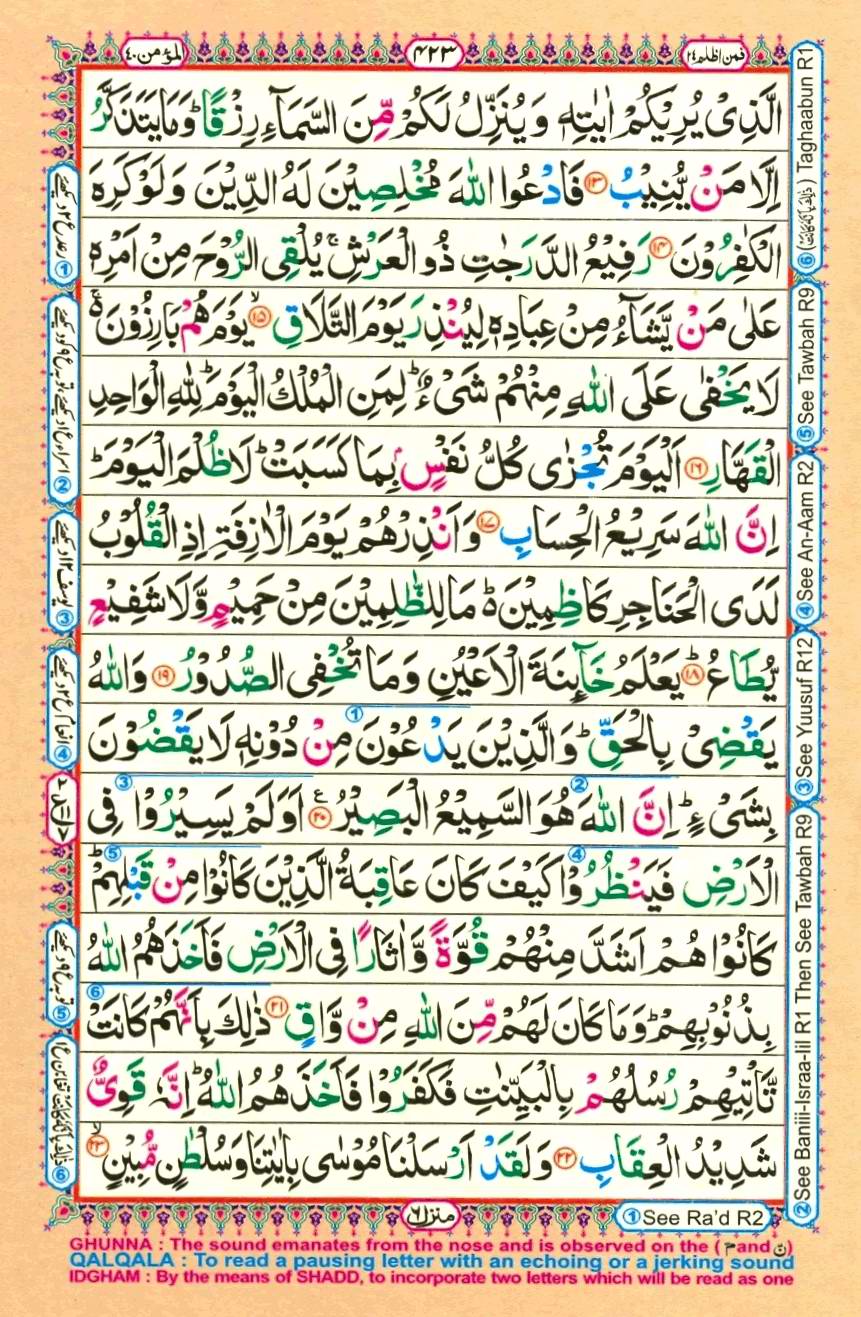 المؤمن ٤٠
٤٢٣
فمن اظلم ٢٤
الَّذِىْ يُرِيْكُمْ اٰيٰتِهٖ وَيُنَزِّلُ لَكُمْ مِّنَ السَّمَآءِ رِزْقًا ؕ وَمَا يَتَذَكَّرُ
اِلَّا مَنْ يُّنِيْبُ ﴿۱۳﴾ فَادْعُوا اللّٰهَ مُخْلِصِيْنَ لَهُ الدِّيْنَ وَلَوْ كَرِهَ
الْكٰفِرُوْنَ ﴿۱۴﴾ رَفِيْعُ الدَّرَجٰتِ ذُو الْعَرْشِ ۚ يُلْقِى الرُّوْحَ مِنْ اَمْرِهٖ
عَلٰى مَنْ يَّشَآءُ مِنْ عِبَادِهٖ لِيُنْذِرَ يَوْمَ التَّلَاقِ ﴿۱۵﴾ۙ يَوْمَ هُمْ بَارِزُوْنَ ۚ۬
لَا يَخْفٰى عَلَى اللّٰهِ مِنْهُمْ شَىْءٌ ؕ لِمَنِ الْمُلْكُ الْيَوْمَ ؕ لِلّٰهِ الْوَاحِدِ
الْقَهَّارِ ﴿۱۶﴾ اَلْيَوْمَ تُجْزٰى كُلُّ نَفْسٍۭ بِمَا كَسَبَتْ ؕ لَا ظُلْمَ الْيَوْمَ ؕ
اِنَّ اللّٰهَ سَرِيْعُ الْحِسَابِ ﴿۱۷﴾ وَاَنْذِرْهُمْ يَوْمَ الْاٰزِفَةِ اِذِ الْقُلُوْبُ
لَدَى الْحَنَاجِرِ كَاظِمِيْنَ ؕ۬ مَا لِلظّٰلِمِيْنَ مِنْ حَمِيْمٍ وَّلَا شَفِيْعٍ
يُّطَاعُ ﴿۱۸﴾ؕ يَعْلَمُ خَآئِنَةَ الْاَعْيُنِ وَمَا تُخْفِى الصُّدُوْرُ ﴿۱۹﴾ وَاللّٰهُ
يَقْضِىْ بِالْحَقِّ ؕ وَالَّذِيْنَ يَدْعُوْنَ مِنْ دُوْنِهٖ لَا يَقْضُوْنَ
بِشَىْءٍ ؕ اِنَّ اللّٰهَ هُوَ السَّمِيْعُ الْبَصِيْرُ ﴿۲۰﴾ اَوَلَمْ يَسِيْرُوْا فِى
الْاَرْضِ فَيَنْظُرُوْا كَيْفَ كَانَ عَاقِبَةُ الَّذِيْنَ كَانُوْا مِنْ قَبْلِهِمْ ؕ
كَانُوْا هُمْ اَشَدَّ مِنْهُمْ قُوَّةً وَّاٰثَارًا فِى الْاَرْضِ فَاَخَذَهُمُ اللّٰهُ
بِذُنُوْبِهِمْ ؕ وَمَا كَانَ لَهُمْ مِّنَ اللّٰهِ مِنْ وَّاقٍ ﴿۲۱﴾ ذٰلِكَ بِاَنَّهُمْ كَانَتْ
تَّاْتِيْهِمْ رُسُلُهُمْ بِالْبَيِّنٰتِ فَكَفَرُوْا فَاَخَذَهُمُ اللّٰهُ ؕ اِنَّهٗ قَوِىٌّ
شَدِيْدُ الْعِقَابِ ﴿۲۲﴾ وَلَقَدْ اَرْسَلْنَا مُوْسٰى بِاٰيٰتِنَا وَسُلْطٰنٍ مُّبِيْنٍ ﴿۲۳﴾ۙ
Taghaabun R1
⑤ See Tawbah R9
④ See An-Aam R2
③ See Yuusuf R12
② See Baniii-Israa-Iil R1 Then See Tawbah R9
منزل ٦
① See Ra'd R2
GHUNNA : The sound emanates from the nose and is observed on the ( م and ن )
QALQALA : To read a pausing letter with an echoing or a jerking sound
IDGHAM : By the means of SHADD, to incorporate two letters which will be read as one